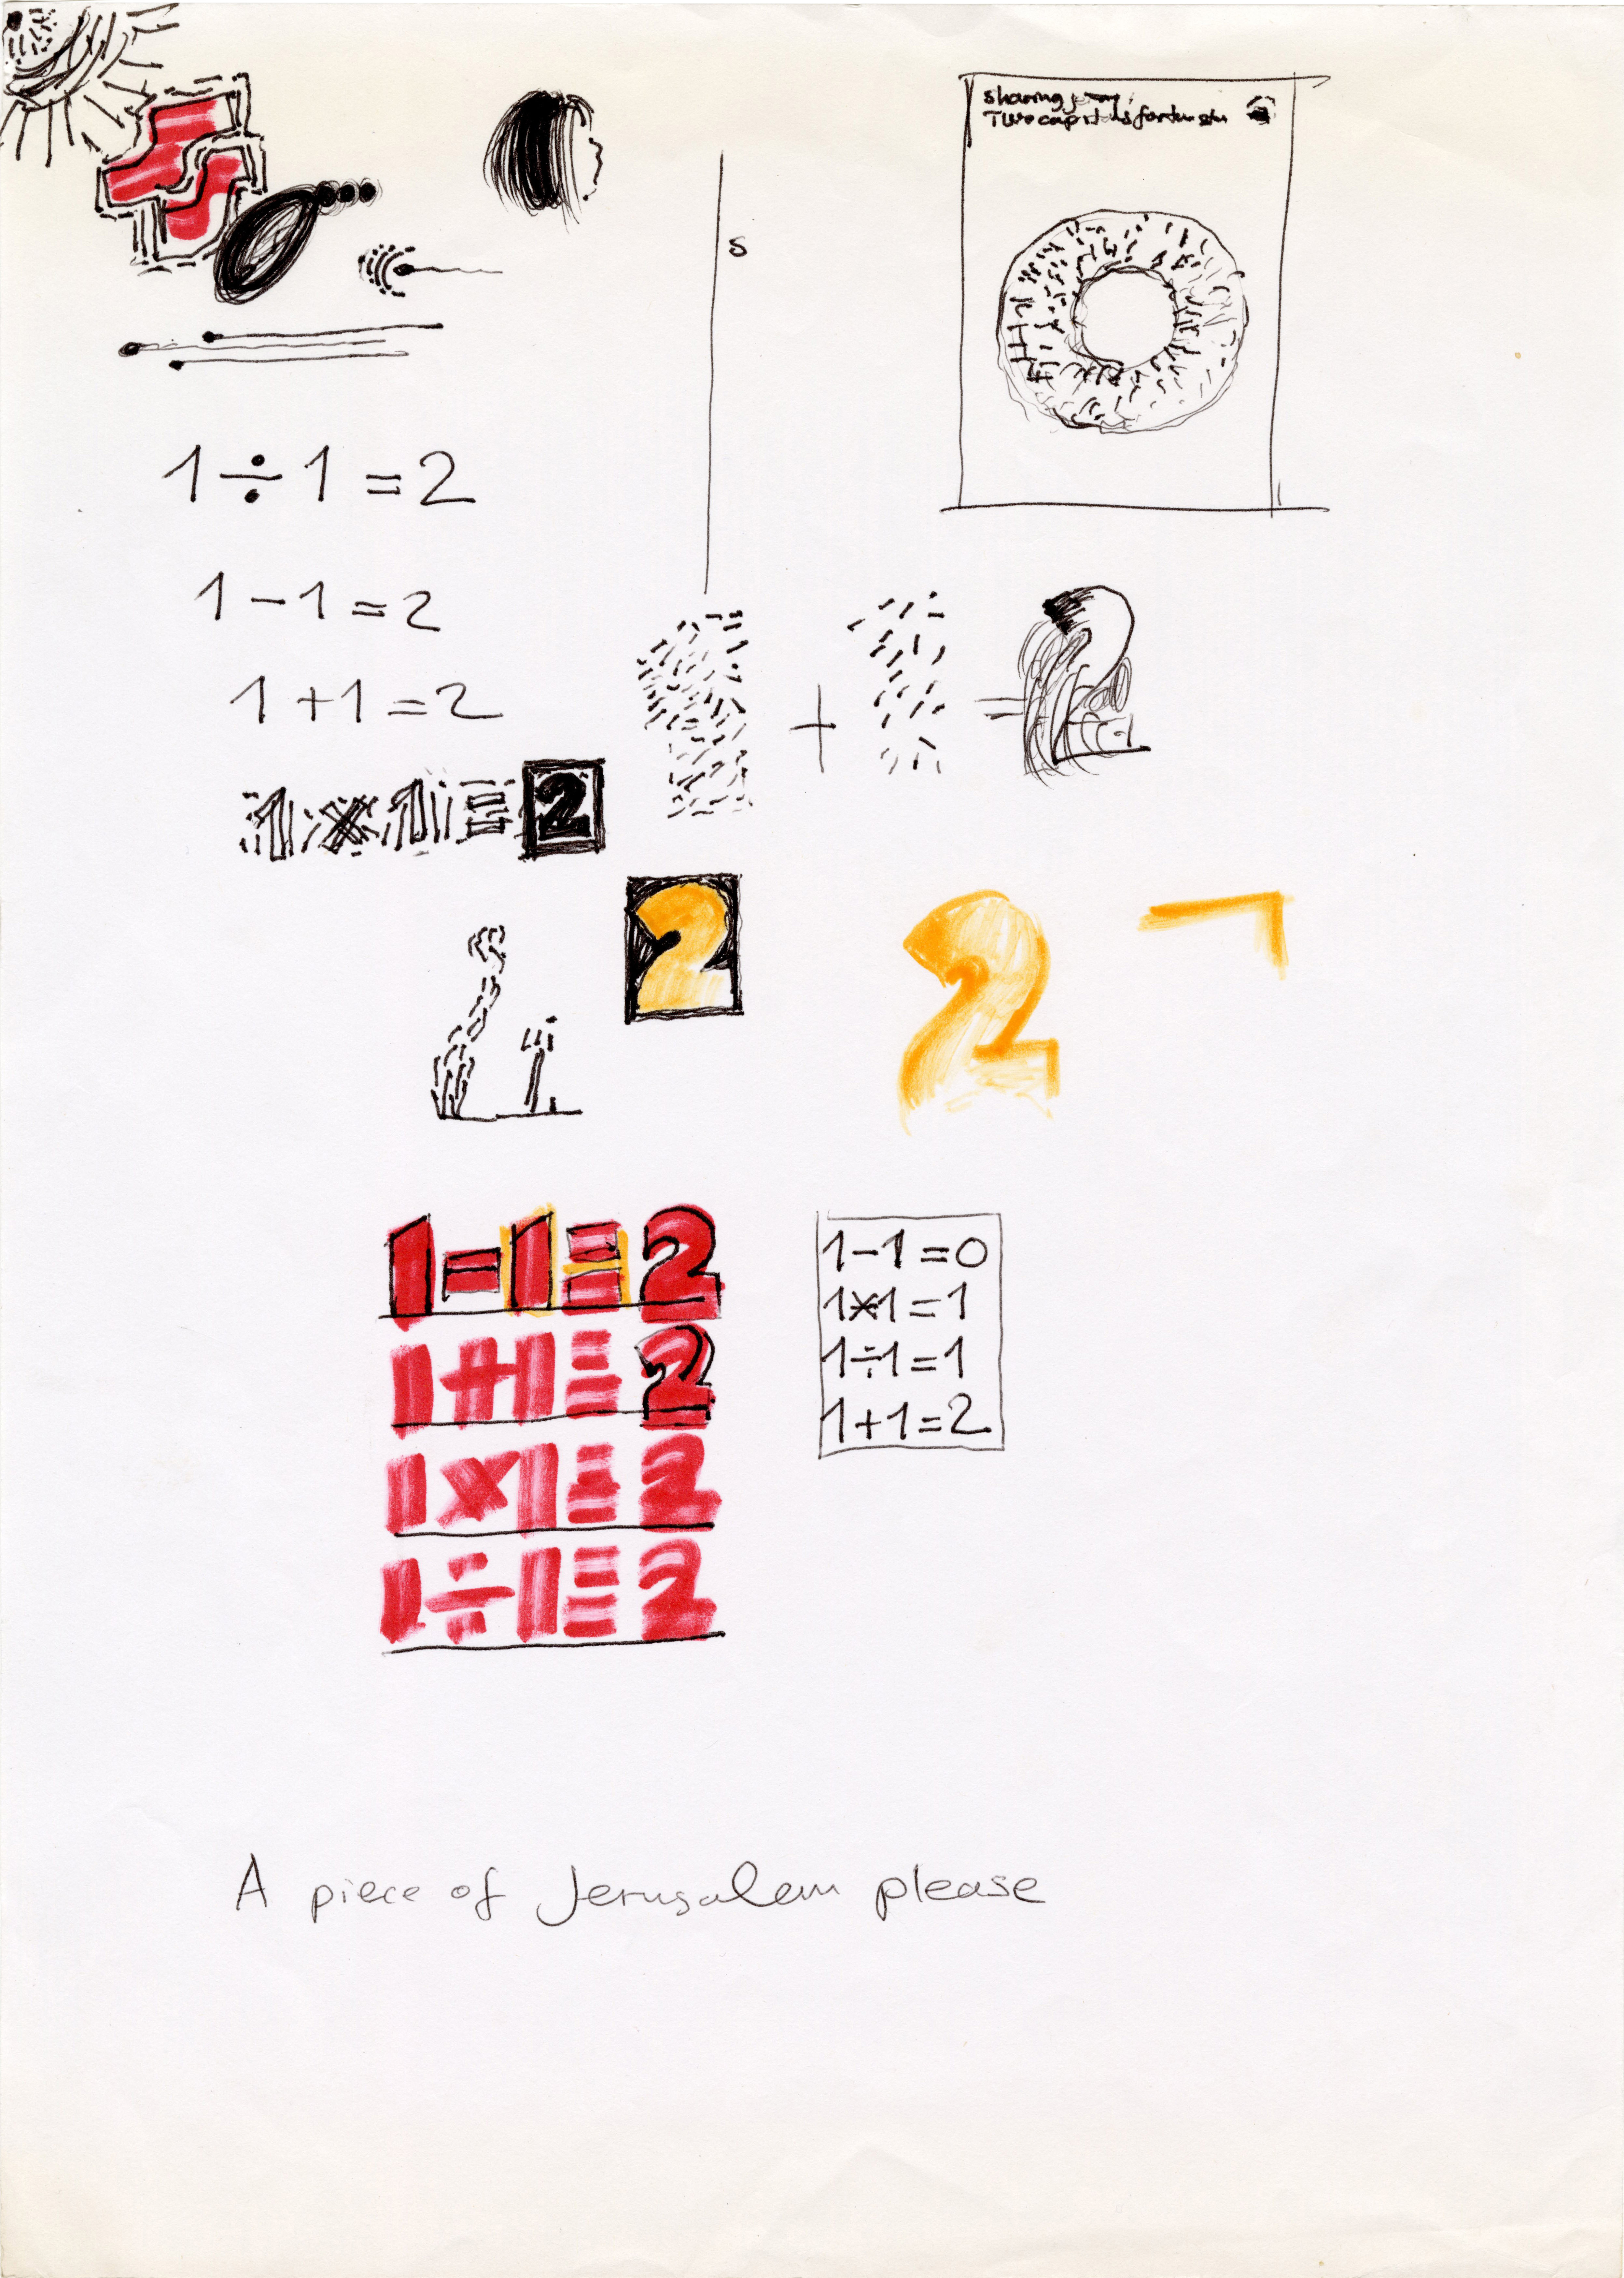 sharing
Two capitals for two
s
1 ÷ 1 = 2
1 - 1 = 2
1 + 1 = 2
+ = 2
1 x 1 = 2
2
2
2
1 - 1 = 2
1 + 1 = 2
1 x 1 = 2
1 ÷ 1 = 2
1 - 1 = 0
1 x 1 = 1
1 ÷ 1 = 1
1 + 1 = 2
A piece of Jerusalem please